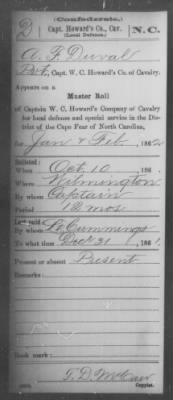 (Confederate.)
D Capt. Howard's Co., Cav. N.C.
(Local Defence.)
A. F. Duval
Pvt, Capt. W. C. Howard's Co. of Cavalry.
Appears on a
Muster Roll
of Captain W. C. Howard's Company of Cavalry
for local defence and special service in the Dis-
trict of the Cape Fear of North Carolina,
for Jan & Feb, 1862
Enlisted:
When Oct 10, 186
Where Wilmington
By whom Captain
Period 12 mos
Last paid:
By whom Cummings
To what time Decr 31, 1861
Present or absent Present
Remarks:
Book mark:
Copyist.